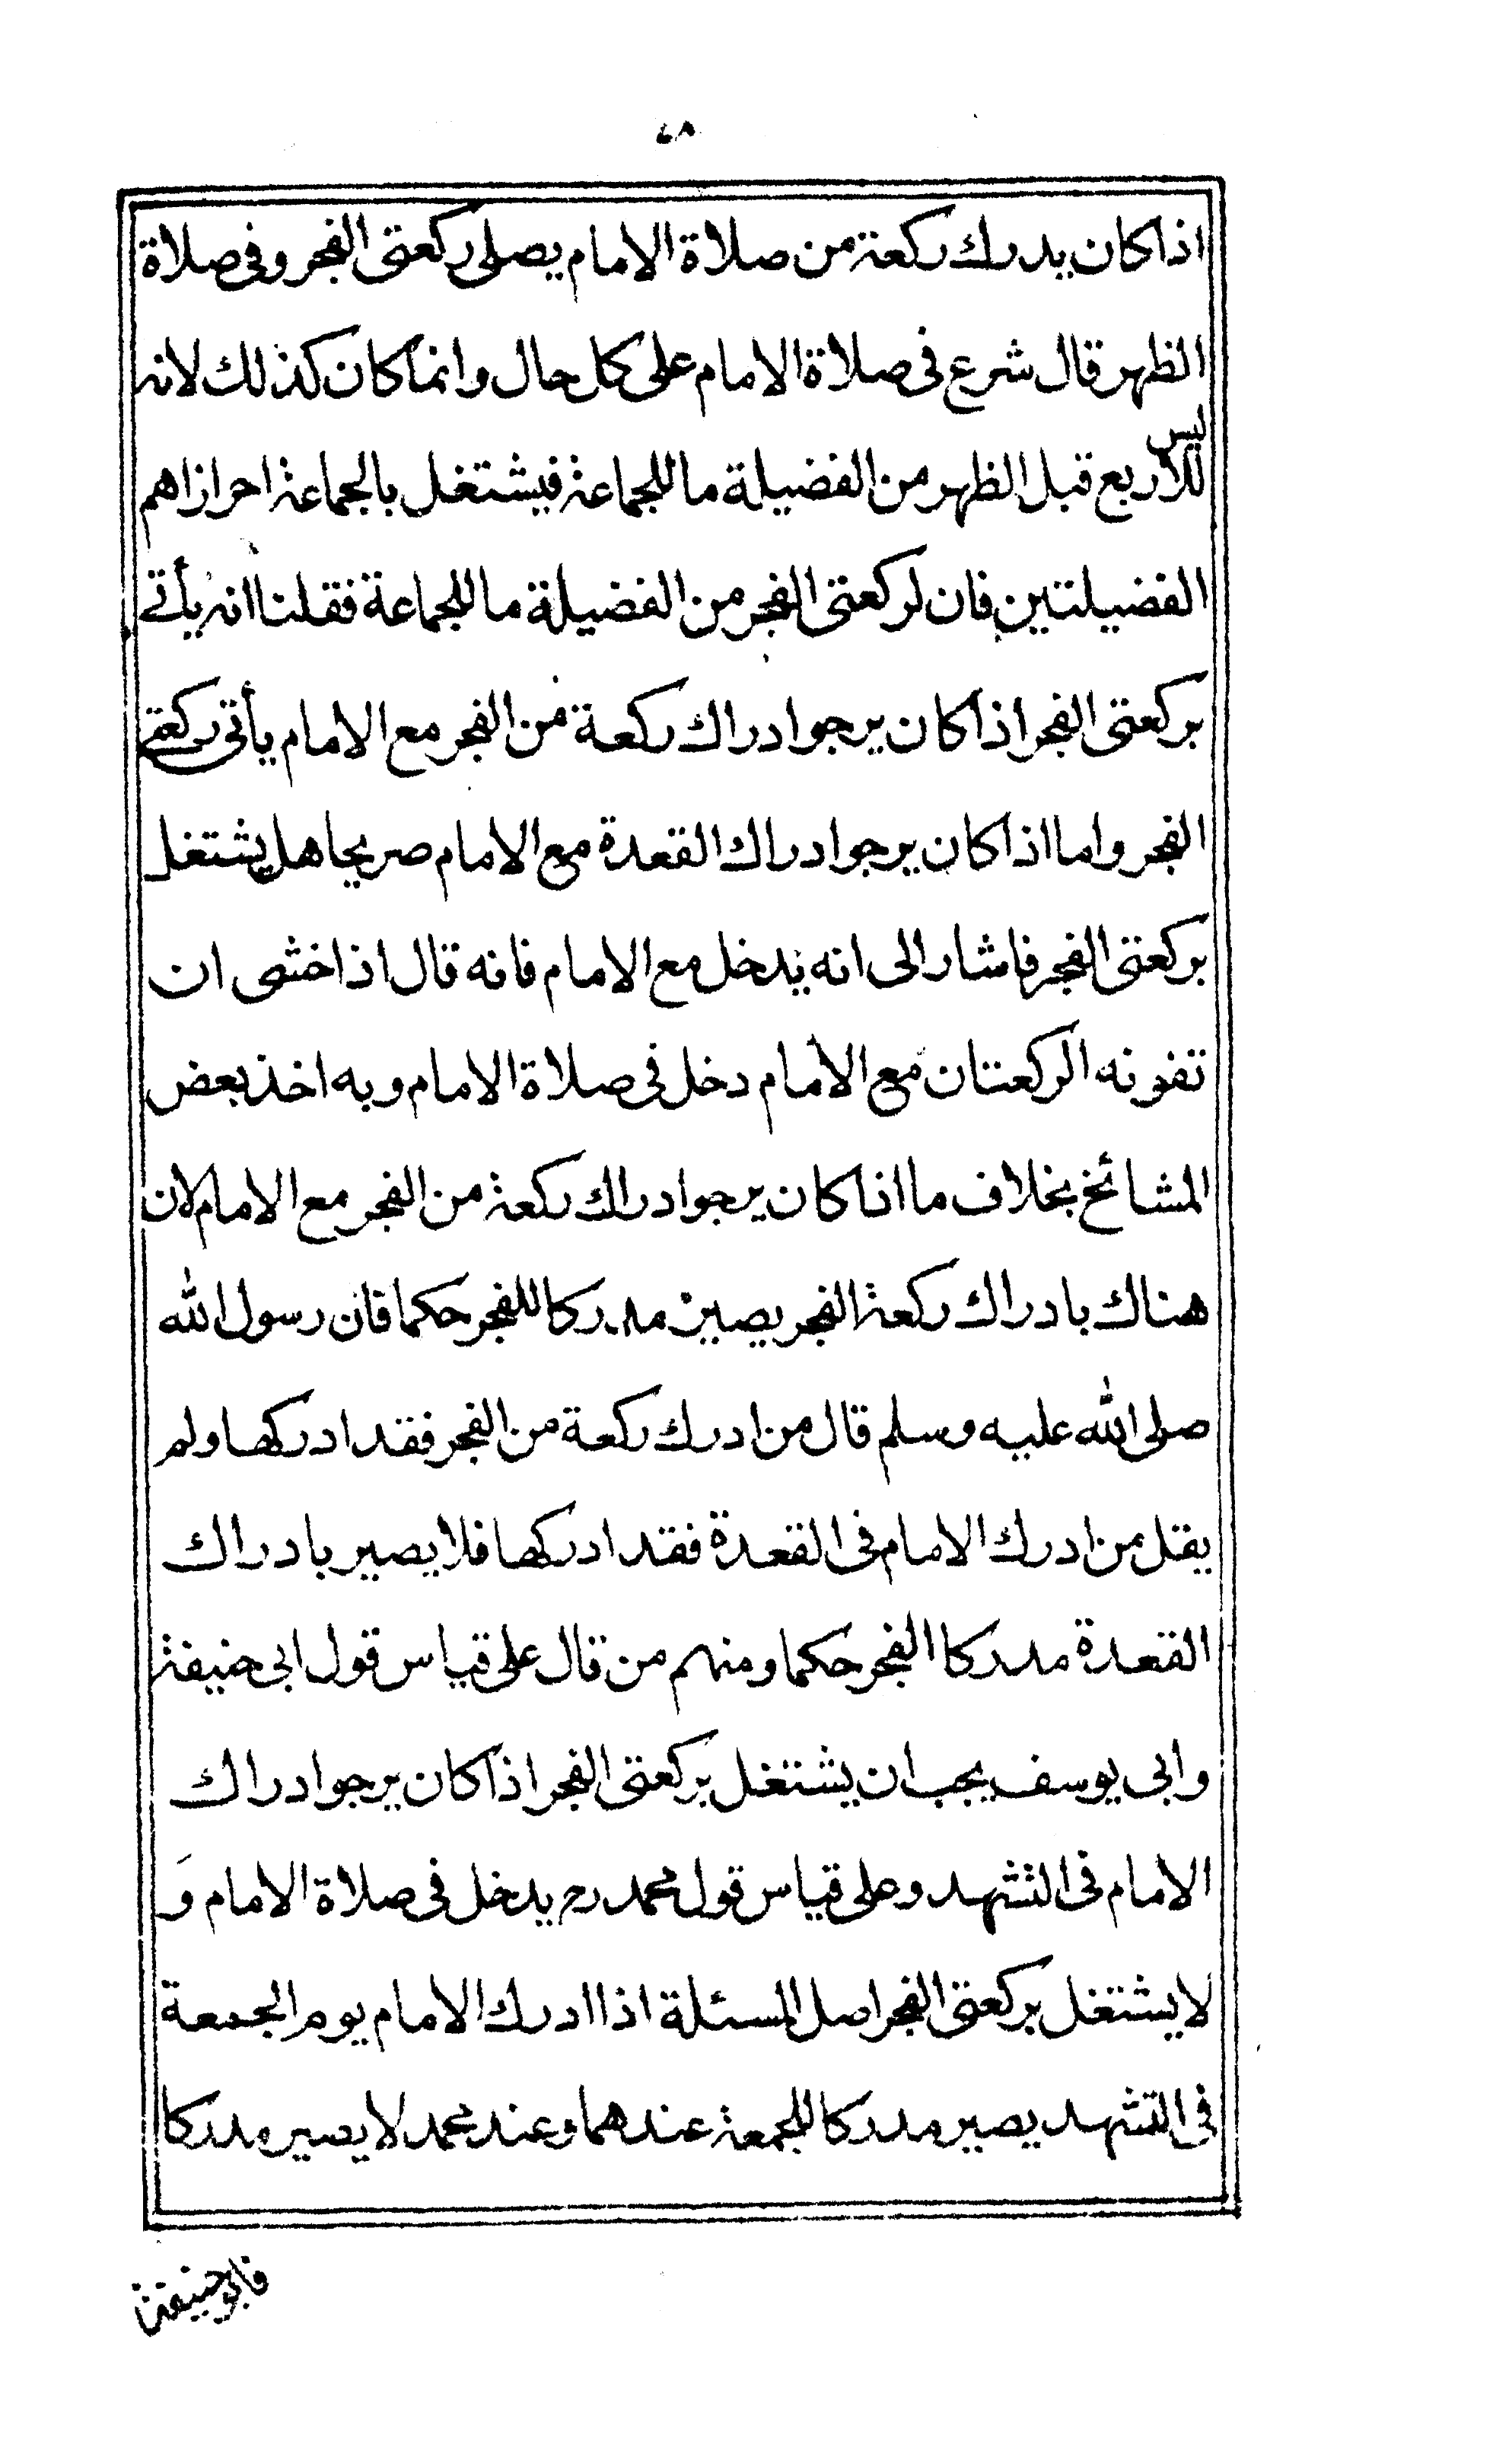 ٤٨
اذا كان يدرك ركعة من صلاة الامام يصلى ركعتى الفجر وفى صلاة
الظهر قال شرع فى صلاة الامام على كل حال وانما كان كذلك لانه
ليس
للاربع قبل الظهر من الفضيلة ما للجماعة فيشتغل بالجماعة احرازا هم
الفضيلتين فان لركعتى الفجر من الفضيلة ما للجماعة فقلنا انه يأتى
بركعتى الفجر اذا كان يرجوا دراك ركعة من الفجر مع الامام يأتى ركعتى
الفجر واما اذا كان يرجوا دراك القعدة مع الامام صريحا هل يشتغل
بركعتى الفجر فاشار الى انه يدخل مع الامام فانه قال اذا خشى ان
تفوته الركعتان مع الامام دخل فى صلاة الامام وبه اخذ بعض
المشائخ بخلاف ما اذا كان يرجوا دراك ركعة من الفجر مع الامام لان
هناك بادراك ركعة الفجر يصير مدركا للفجر حكما فان رسول الله
صلى الله عليه وسلم قال من ادرك ركعة من الفجر فقد ادركها ولم
يقل من ادرك الامام فى القعدة فقد ادركها فلا يصير بادراك
القعدة مدركا الفجر حكما ومنهم من قال على قياس قول ابى حنيفة
وابى يوسف يجب ان يشتغل بركعتى الفجر اذا كان يرجوا دراك
الامام فى التشهد وعلى قياس قول محمد رح يدخل فى صلاة الامام وَ
لا يشتغل بركعتى الفجر اصل المسئلة اذا ادرك الامام يوم الجمعة
فى التشهد يصير مدركا للجمعة عندهما وعند محمد لا يصير مدركا
فابو حنيفة